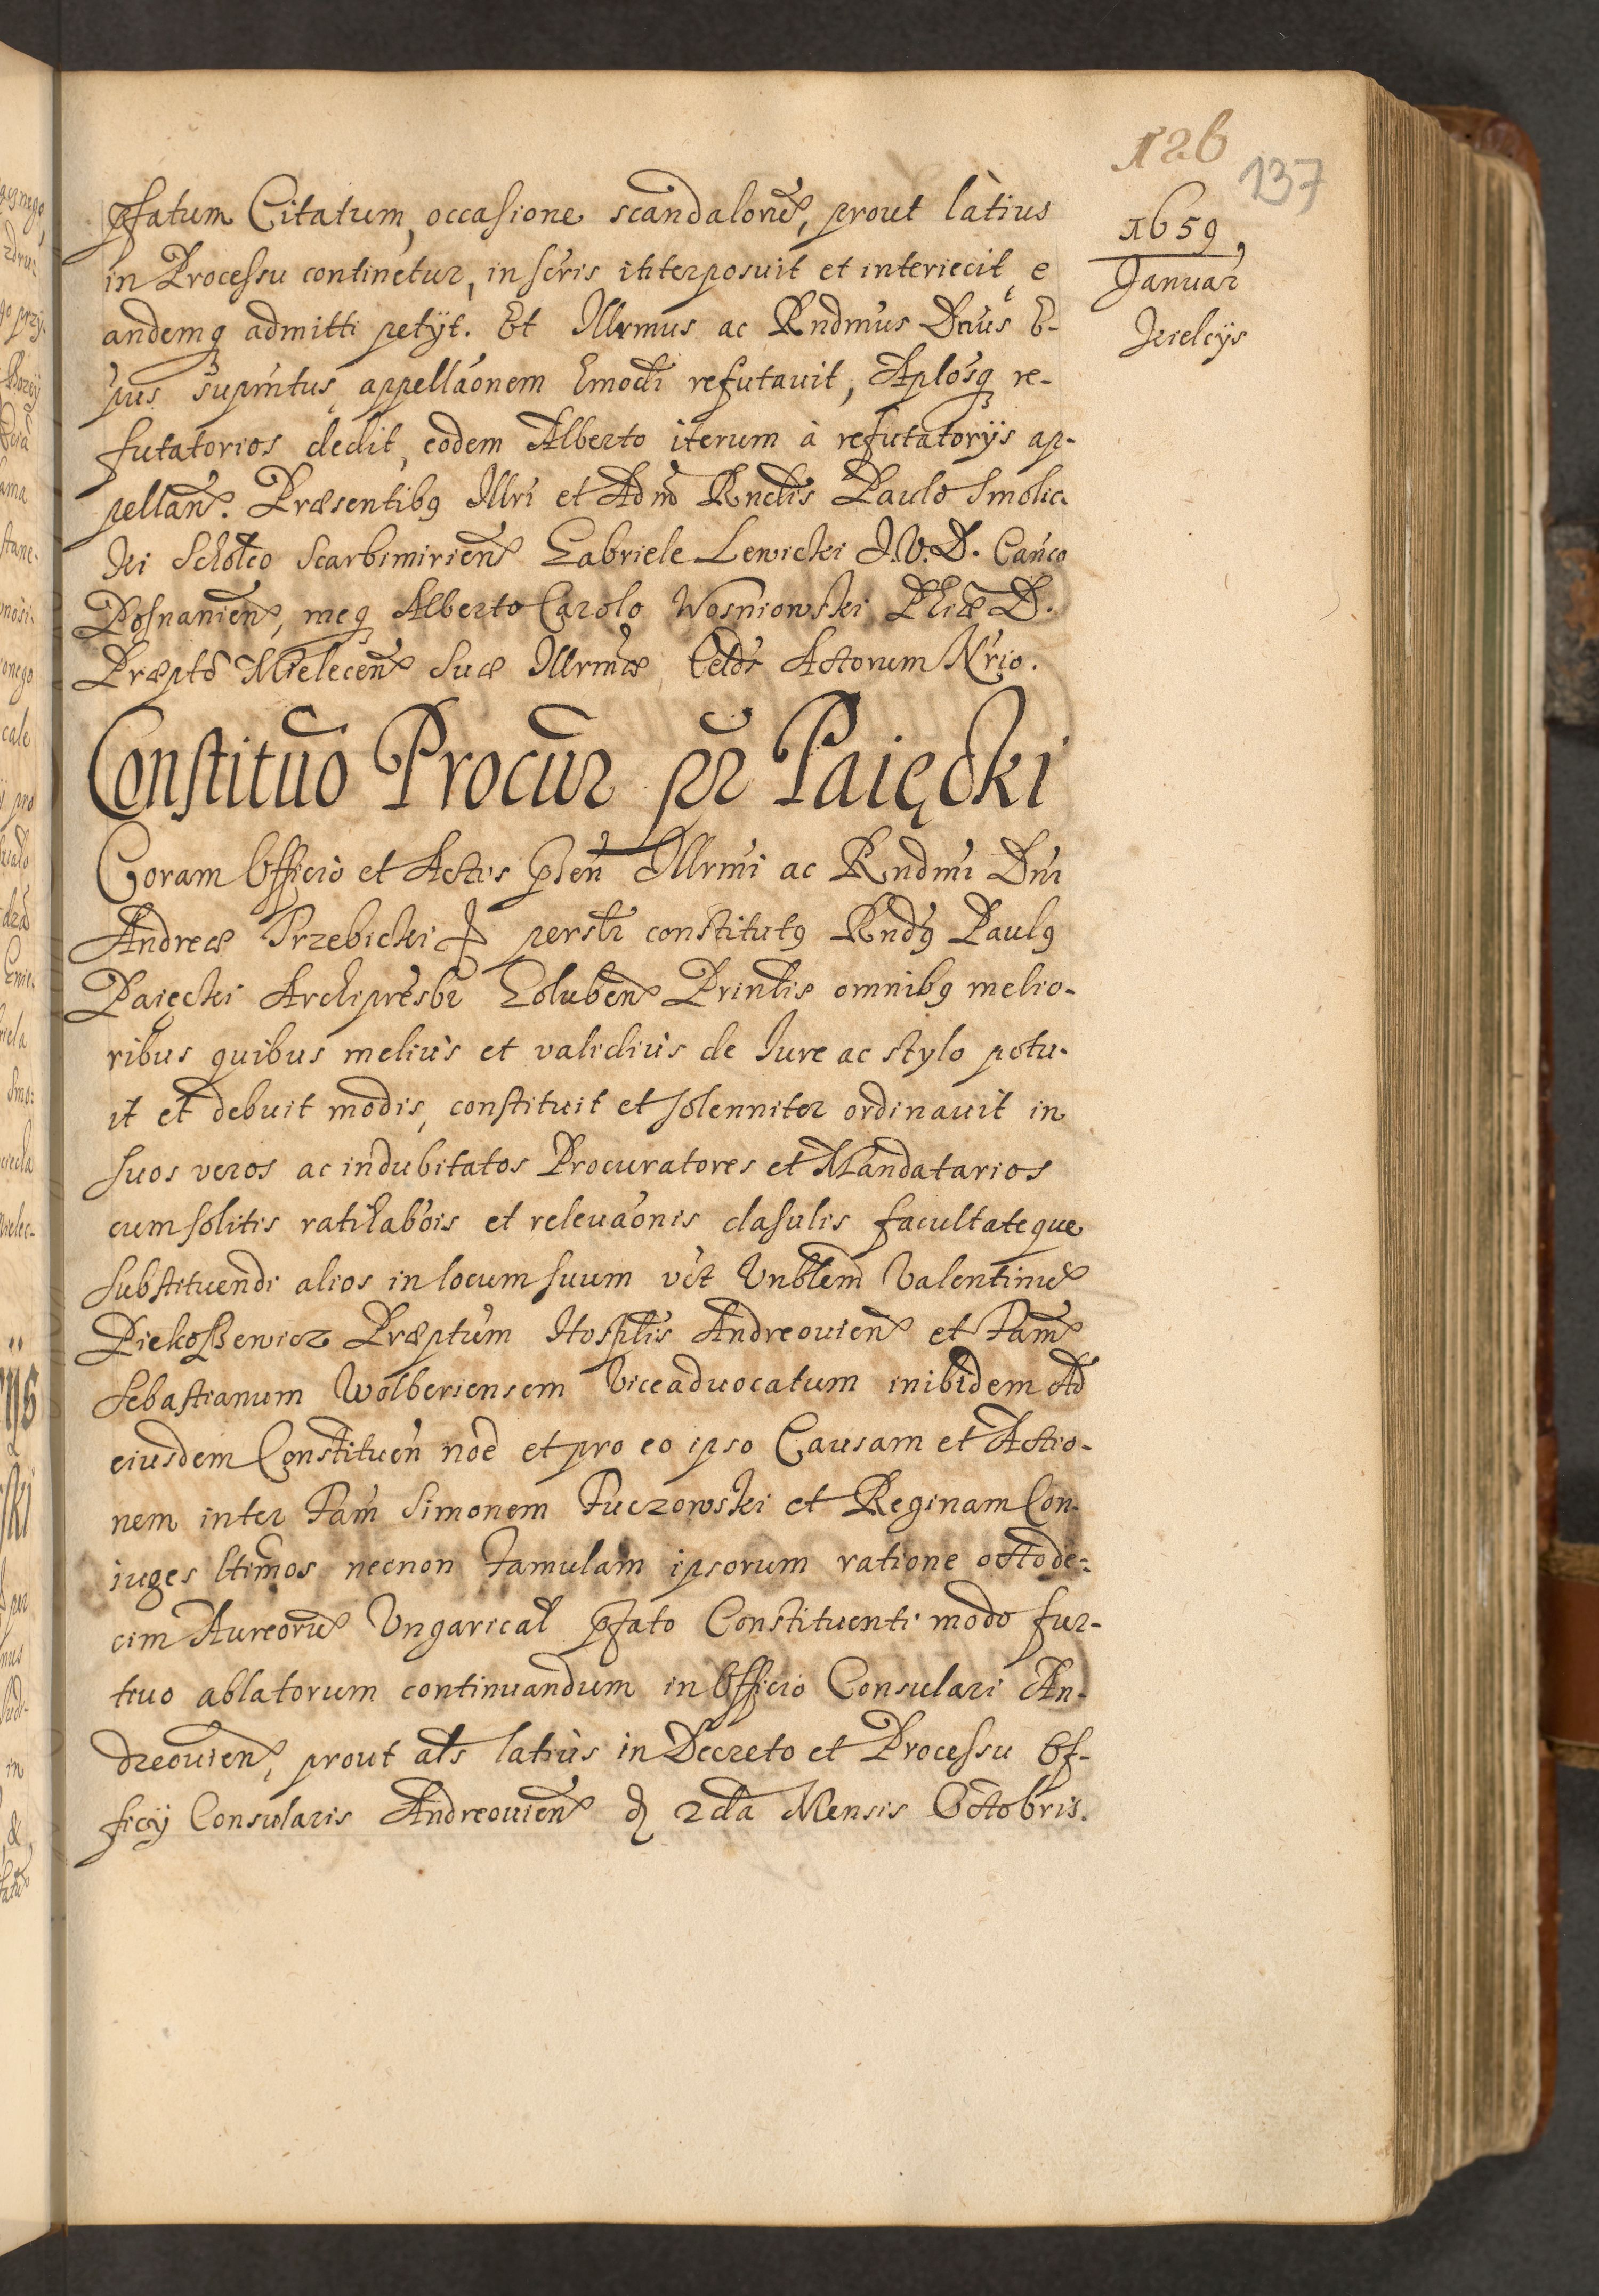 126
137
1659,
Januar
Kielcijs
pfatum Citatum, occasione scandalorũ, prout làtius
in Processu continetur, in scris interposuit et interiecit, e
andemq admitti petijt. Et Illrmus ac Rndmus Dnus E-
pus supmtus, appellaonem Emodi refutauit, Aplosq re-
futatorios dedit, eodem Alberto iterum à refutatorijs ap-
pellan. Præsentibq Illri et Adm Rndis Paulo Smolic
ki Scholco Scarbimirien Gabriele Lewicki I.V.D. Canco
Posnanien, meq Alberto Carolo Wosniowski Phiæ D.
Præpto Mielecen suæ Illrmæ Celdis Actorum Nrio.
Constituõ Procur pr Paięcki
Coram Officio et Actis pñ Illrmi ac Rndmi Dni
Andreæ Trzebicki persoltr constitutq Rndq Paulq
Paięcki Archipresbr Goluben Prinlis omnibq melio-
ribus quibus meliùs et validiùs de Iure ac stylo potu-
it et debuit modis, constituit et solenniter ordinauit in
suos veros ac indubitatos Procuratores et Mandatarios
cum solitis ratihabois et releuaonis clasulis facultateque
substituendi alios in locum suum vct Vnblem Valentinũ
Piekoszewicz Præptum Hosptlis Andreouien et Fam
Sebastianum Wolberiensem Viceaduocatum inibidem Ad
eiusdem Constituen noe et pro eo ipso Causam et Actio-
nem inter Fam Simonem Tuczowski et Reginam Con-
iuges ltimos necnon Famulam ipsorum ratione octode-
cim Aureorũ Ungarical pfato Constituenti modo fur-
tiuo ablatorum continuandum in Officio Consulari An-
dreouien, prout als latiùs in Decreto et Processu Of-
ficij Consularis Andreouien d 2da Mensis Octobris.